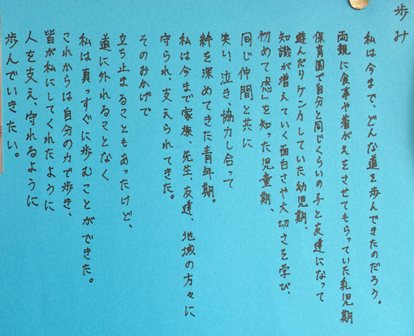 歩み
私は今まで、どんな道を歩んできたのだろう。
両親に食事や着がえをさせてもらっていた乳児期
保育園で自分と同じくらいの子と友達になって
遊んだりケンカしていた幼児期、
知識が増えていく面白さや大切さを学び、
初めて"恋"を知った児童期、
同じ仲間と共に
笑い、泣き、協力し合って
絆を深めてきた青年期。
私は今まで家族、先生、友達、地域の方々に
守られ、支えられてきた。
そのおかげで
立ち止まることもあったけど、
道に外れることなく
私は真っすぐに歩むことができた。
これからは自分の力で歩き、
皆が私にしてくれたように
人を支え、守れるように
歩んでいきたい。